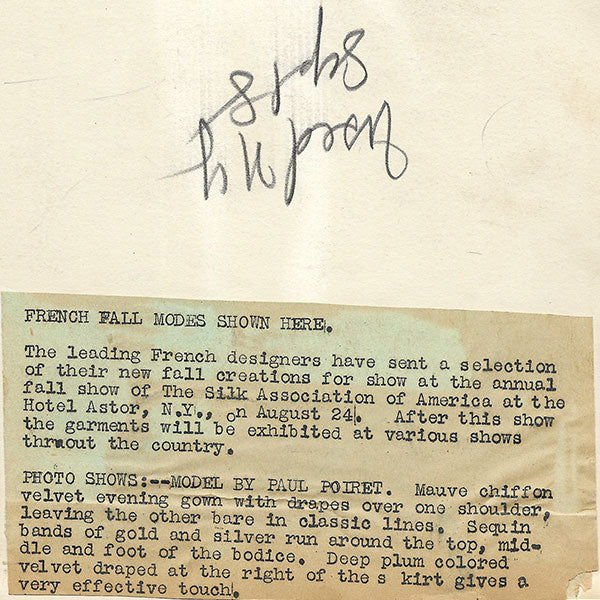 FRENCH FALL MODES SHOWN HERE.
The leading French designers have sent a selection
of their new fall creations for show at the annual
fall show of The Silk Association of America at the
Hotel Astor, N.Y., on August 24. After this show
the garments will be exhibited at various shows
thruout the country.
PHOTO SHOWS:--MODEL BY PAUL POIRET. Mauve chiffon
velvet evening gown with drapes over one shoulder,
leaving the other bare in classic lines. Sequin
bands of gold and silver run around the top, mid-
dle and foot of the bodice. Deep plum colored
velvet draped at the right of the s kirt gives a
very effective touch.